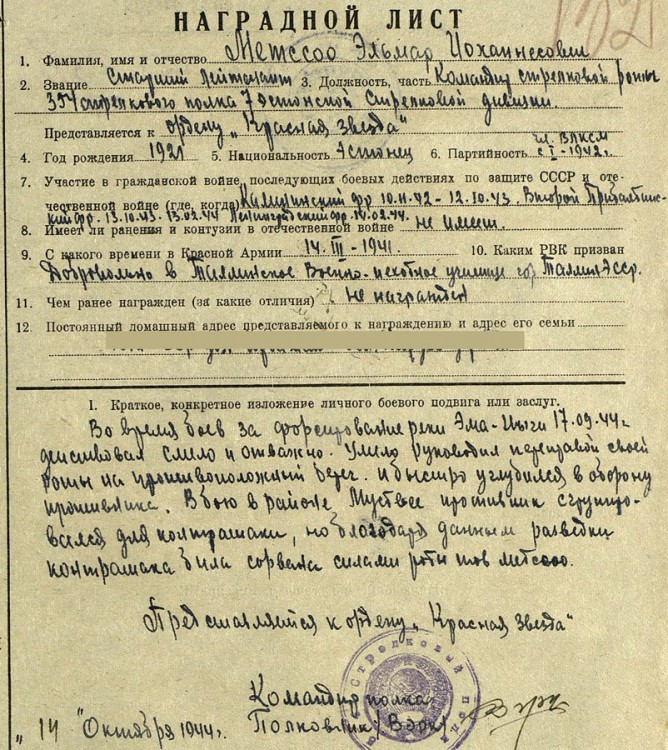 НАГРАДНОЙ ЛИСТ
1. Фамилия, имя и отчество Метссоо Эльмар Иоханнесович
2. Звание Старший лейтенант 3. Должность, часть Командир стрелковой роты
354 стрелкового полка 7 Эстонской Стрелковой дивизии
Представляется к ордену „Красная звезда“
4. Год рождения 1921 5. Национальность Эстонец 6. Партийность чл. ВЛКСМ с I-1942г.
7. Участие в гражданской войне, последующих боевых действиях по защите СССР и оте-
чественной войне (где, когда) Калининский фр 10.11.42 - 12.10.43. Второй Прибалтий-
ский фр. 13.10.43 - 13.02.44 Ленинградский фр. 14.02.44.
8. Имеет ли ранения и контузии в отечественной войне не имеет.
9. С какого времени в Красной Армии 14.III-1941. 10. Каким РВК призван
Добровольно в Таллинское Военно-пехотное училище гор. Таллин Эсср.
11. Чем ранее награжден (за какие отличия) не награжден
12. Постоянный домашний адрес представляемого к награждению и адрес его семьи
I. Краткое, конкретное изложение личного боевого подвига или заслуг.
Во время боев за форсирование реки Эма-Иыги 17.09.44г.
действовал смело и отважно. Умело руководил переправой своей
роты на противоположный берег и быстро углубился в оборону
противника. В бою в районе противник сгруппиро-
вался для контратаки, но благодаря данным разведки
контратака была сорвана силами роты тов Метссоо.
Представляется к ордену „Красная звезда“
Командир полка
Полковник /Вырк/
"14" Октября 1944г.
Стрелковый полк